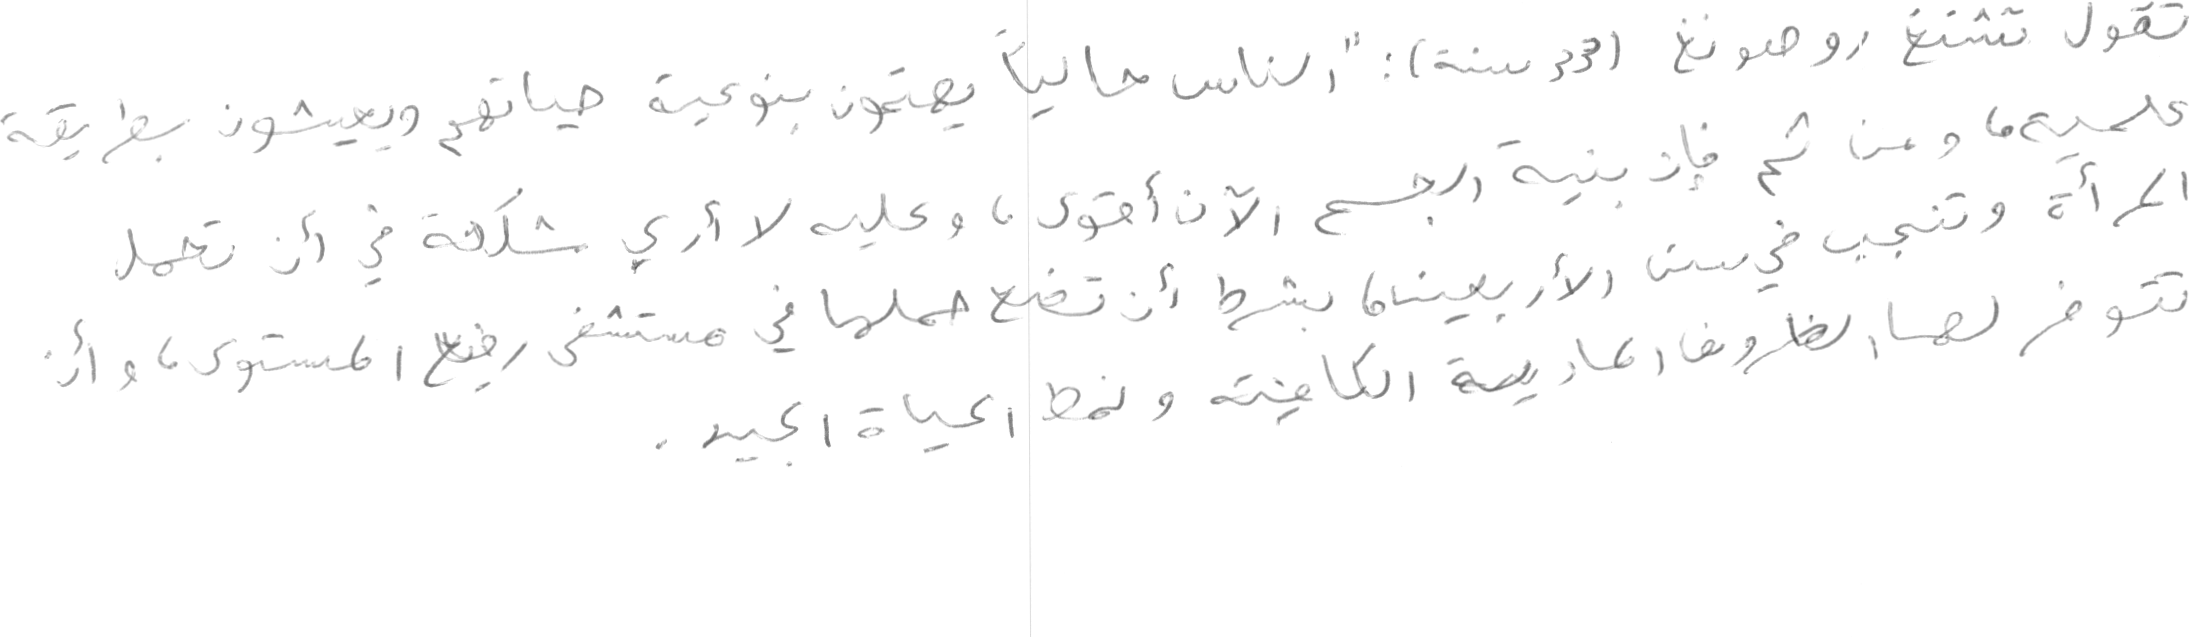 تقول تشنغ روهونغ (33 سنة): "الناس حالياً يهتمون بنوعية حياتهم ويعيشون بطريقة
علمية، ومن ثم فإن بنية الجسم الآن أقوى، وعليه لا أرى مشكلة في أن تحمل
المرأة وتنجب في سن الأربعين، بشرط أن تضع حملها في مستشفى رفيع المستوى، وأن
تتوفر لها الظروف المادية الكافية ونمط الحياة الجيد.